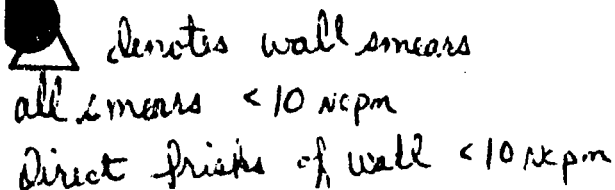 Denotes wall smears
all smears < 10 ncpm
Direct frisks of wall < 10 ncpm